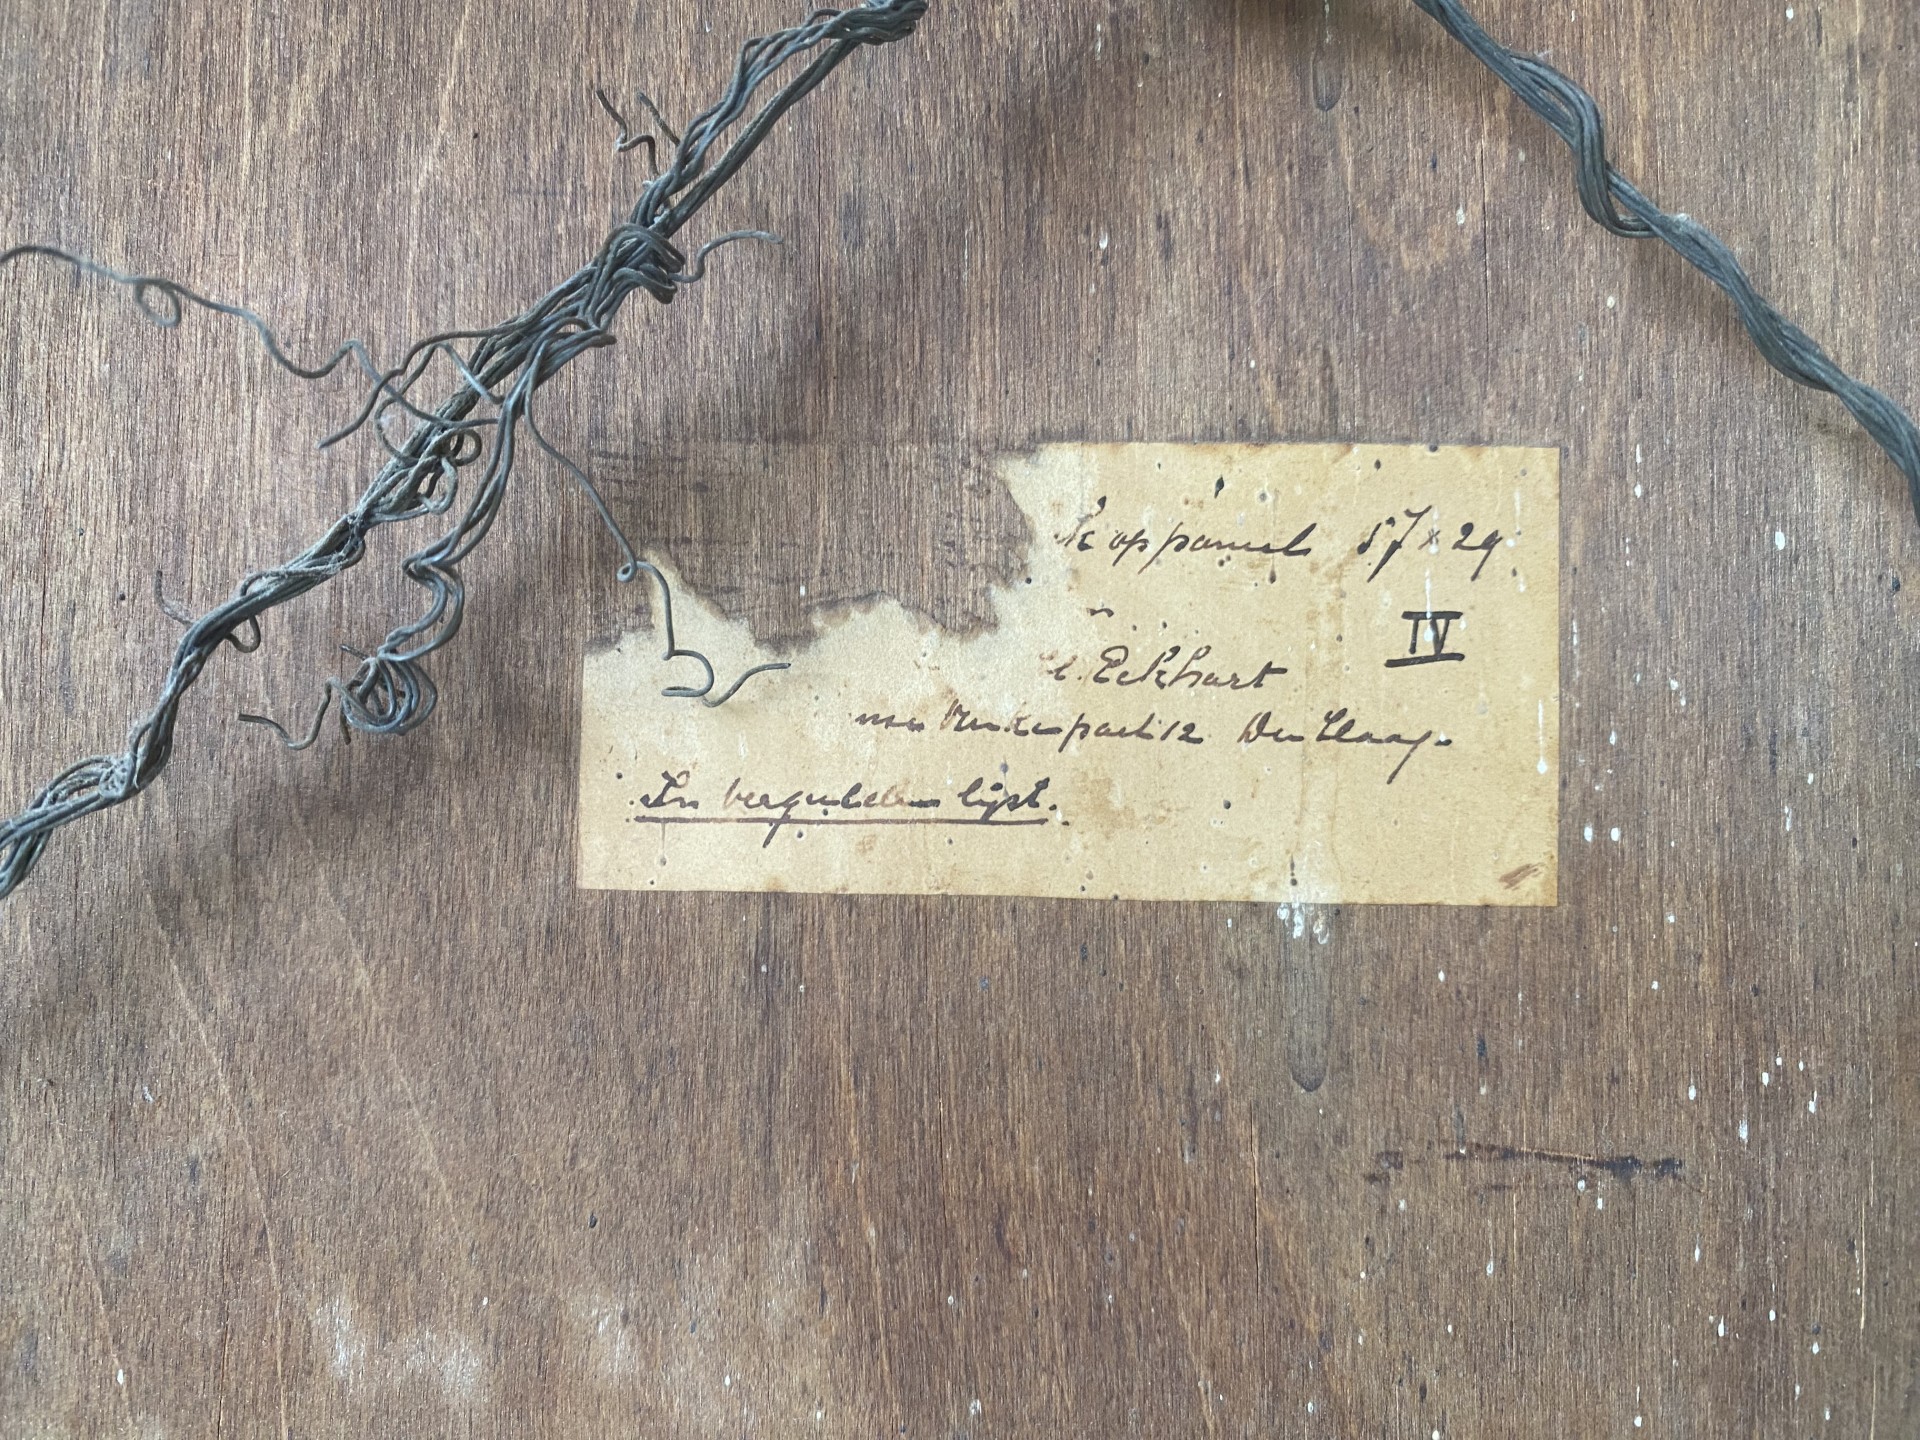 op paneel 57 x 29
IV
Eckhart
12 Den Haag.
In vergulden lijst.